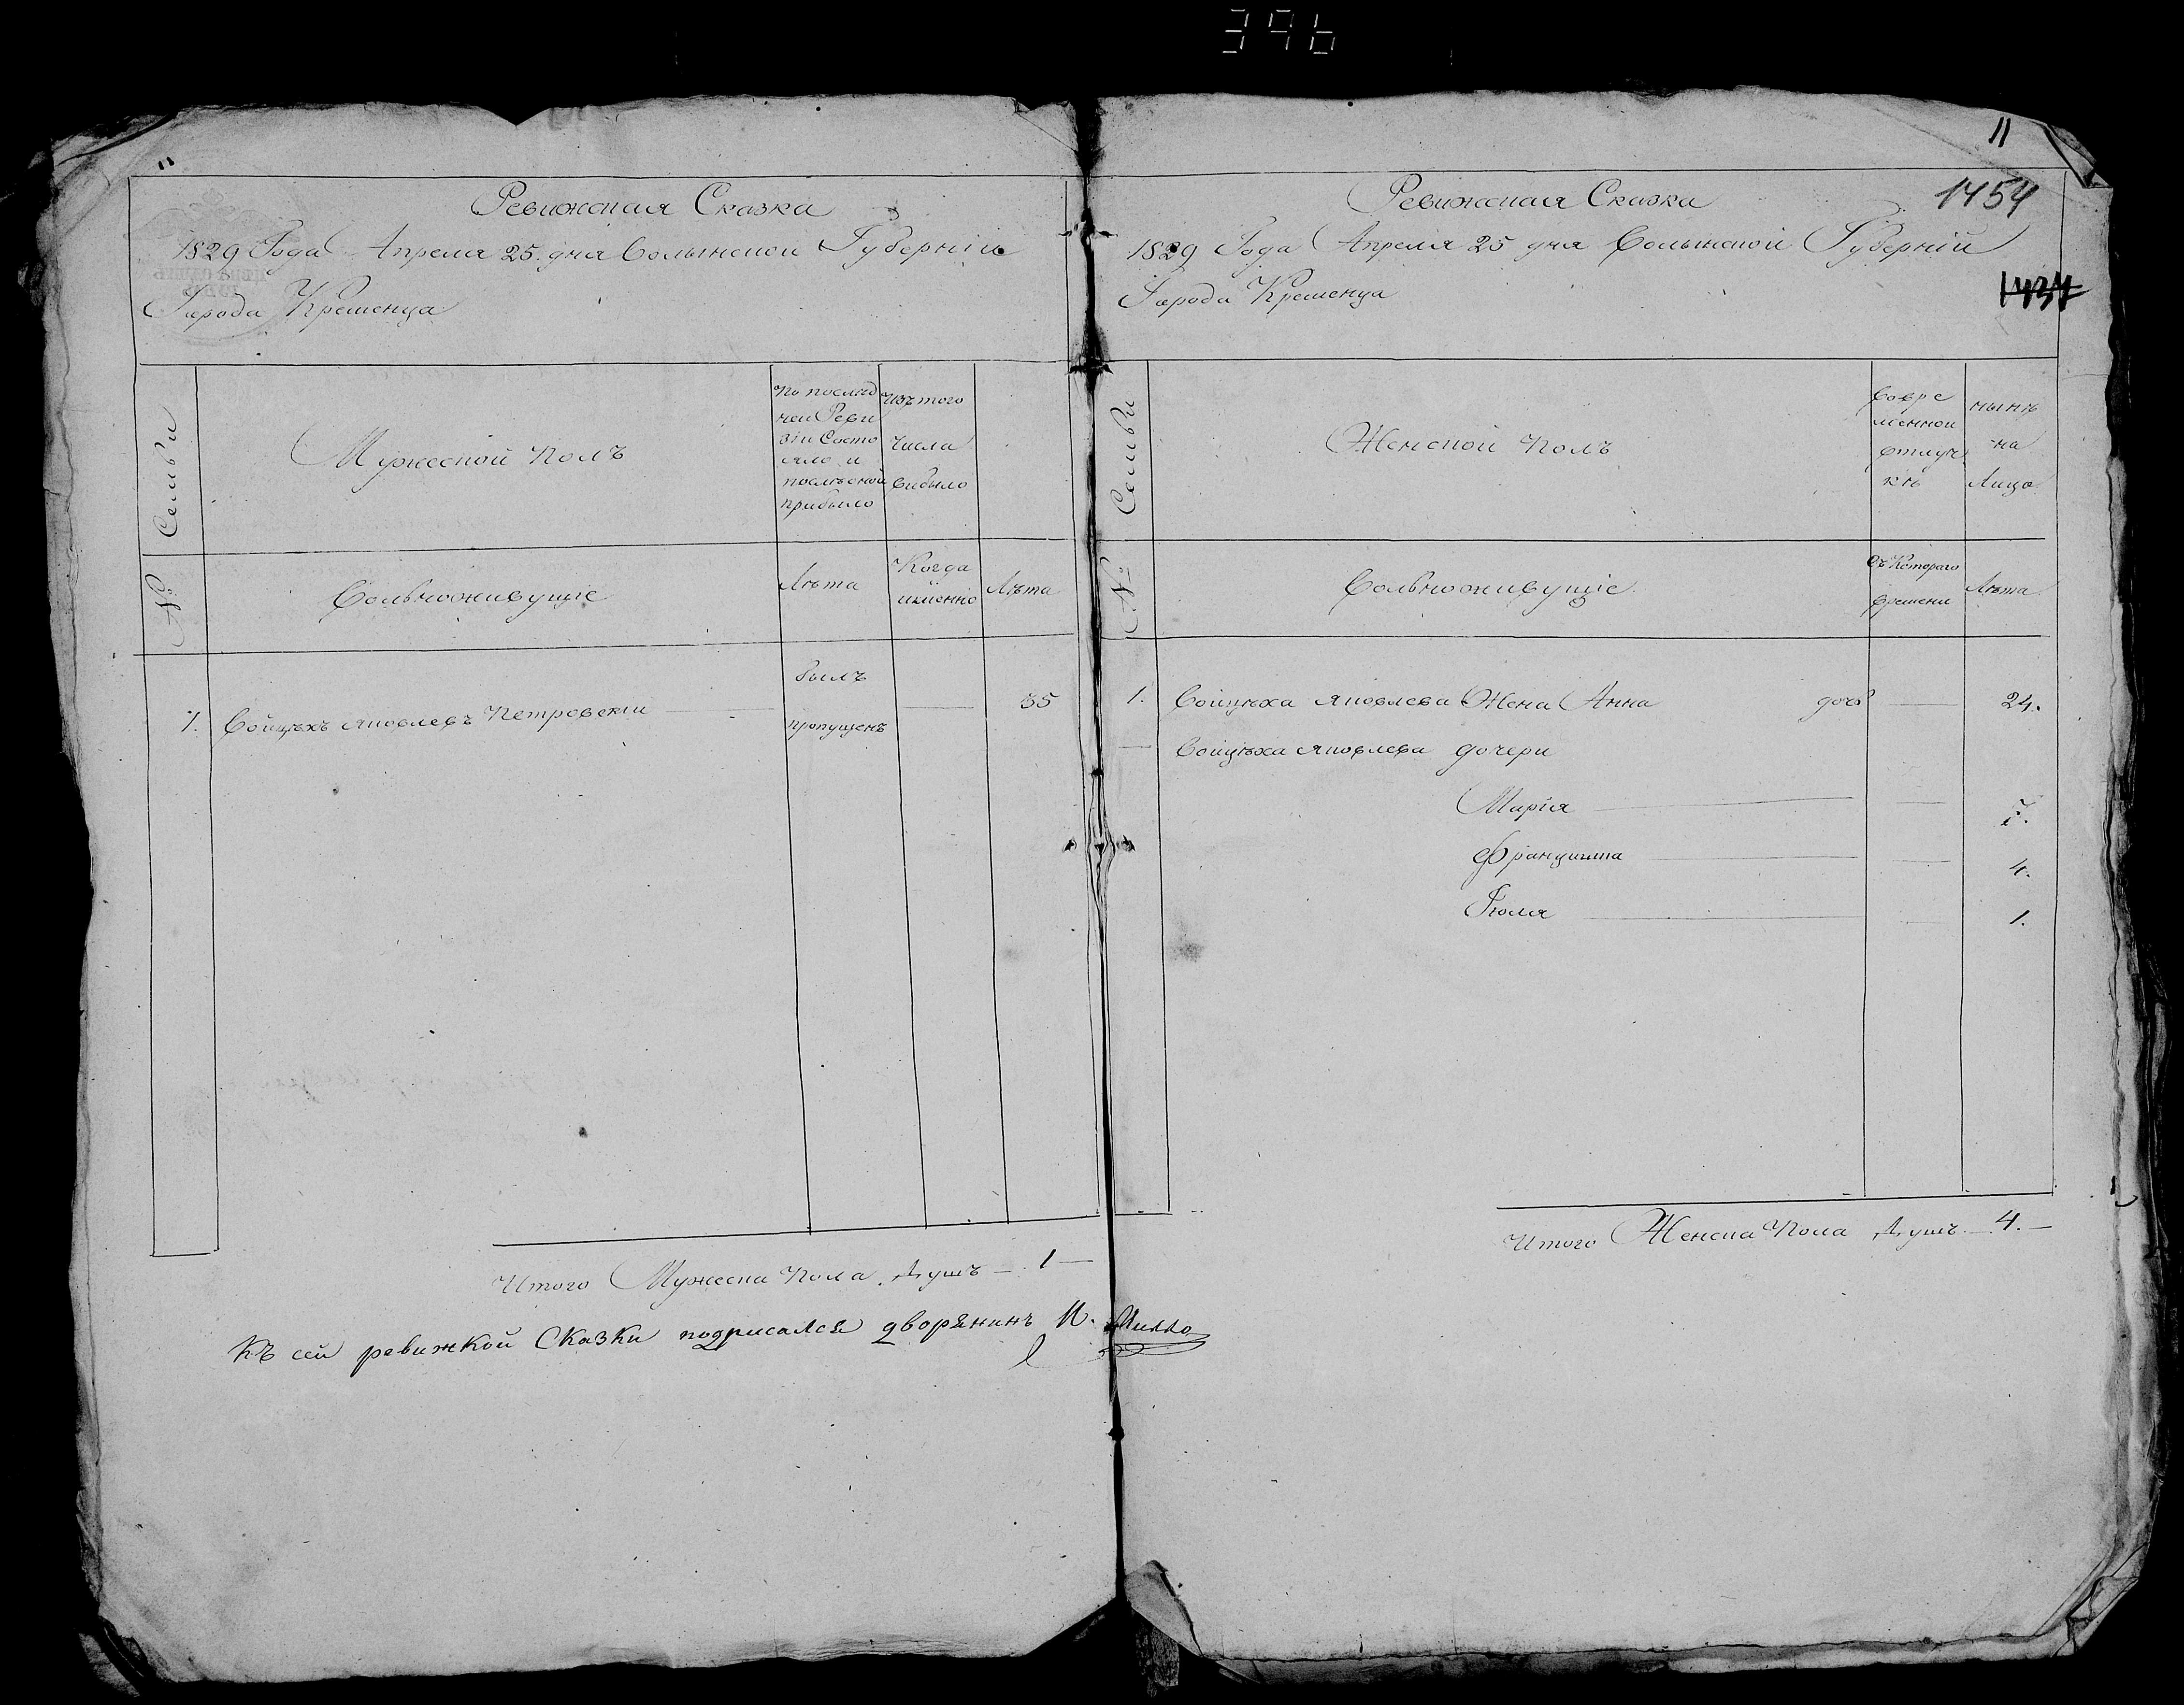 396
11
Ревижская Сказка
1829 Года Апреля 25. дня Волынской Губерніи
Города Кременца
№ Семьи
Мужеской полъ
По послѣд
ней Реви
зіи Состо
яло и
послѣ оной
прибыло
изъ того
числа
выбыло
Вольноживущіе
Лѣта
Когда
именно
Лѣта
1. Войцѣхъ Яковлевъ Петровскій
былъ
пропущенъ
35
Итого Мужеска Пола Душъ — 1 —
Къ сей ревижкой Сказки подписался дворянинъ
11
1454
1434
Ревижская Сказка
1829 Года Апреля 25 дня Волынской Губерніи
Города Кременца
№ Семьи
Женской полъ
Вовре
менной
отлуч
кѣ
нынѣ
на
Лицо
Вольноживущіе
Съ Котораго
времени
Лѣта
1. Войцѣха Яковлева Жена Анна — 24.
— Войцѣха Яковлева дочери
Марія — 7.
Францишка — 4.
1.
Итого Женска Пола Душъ — 4. —